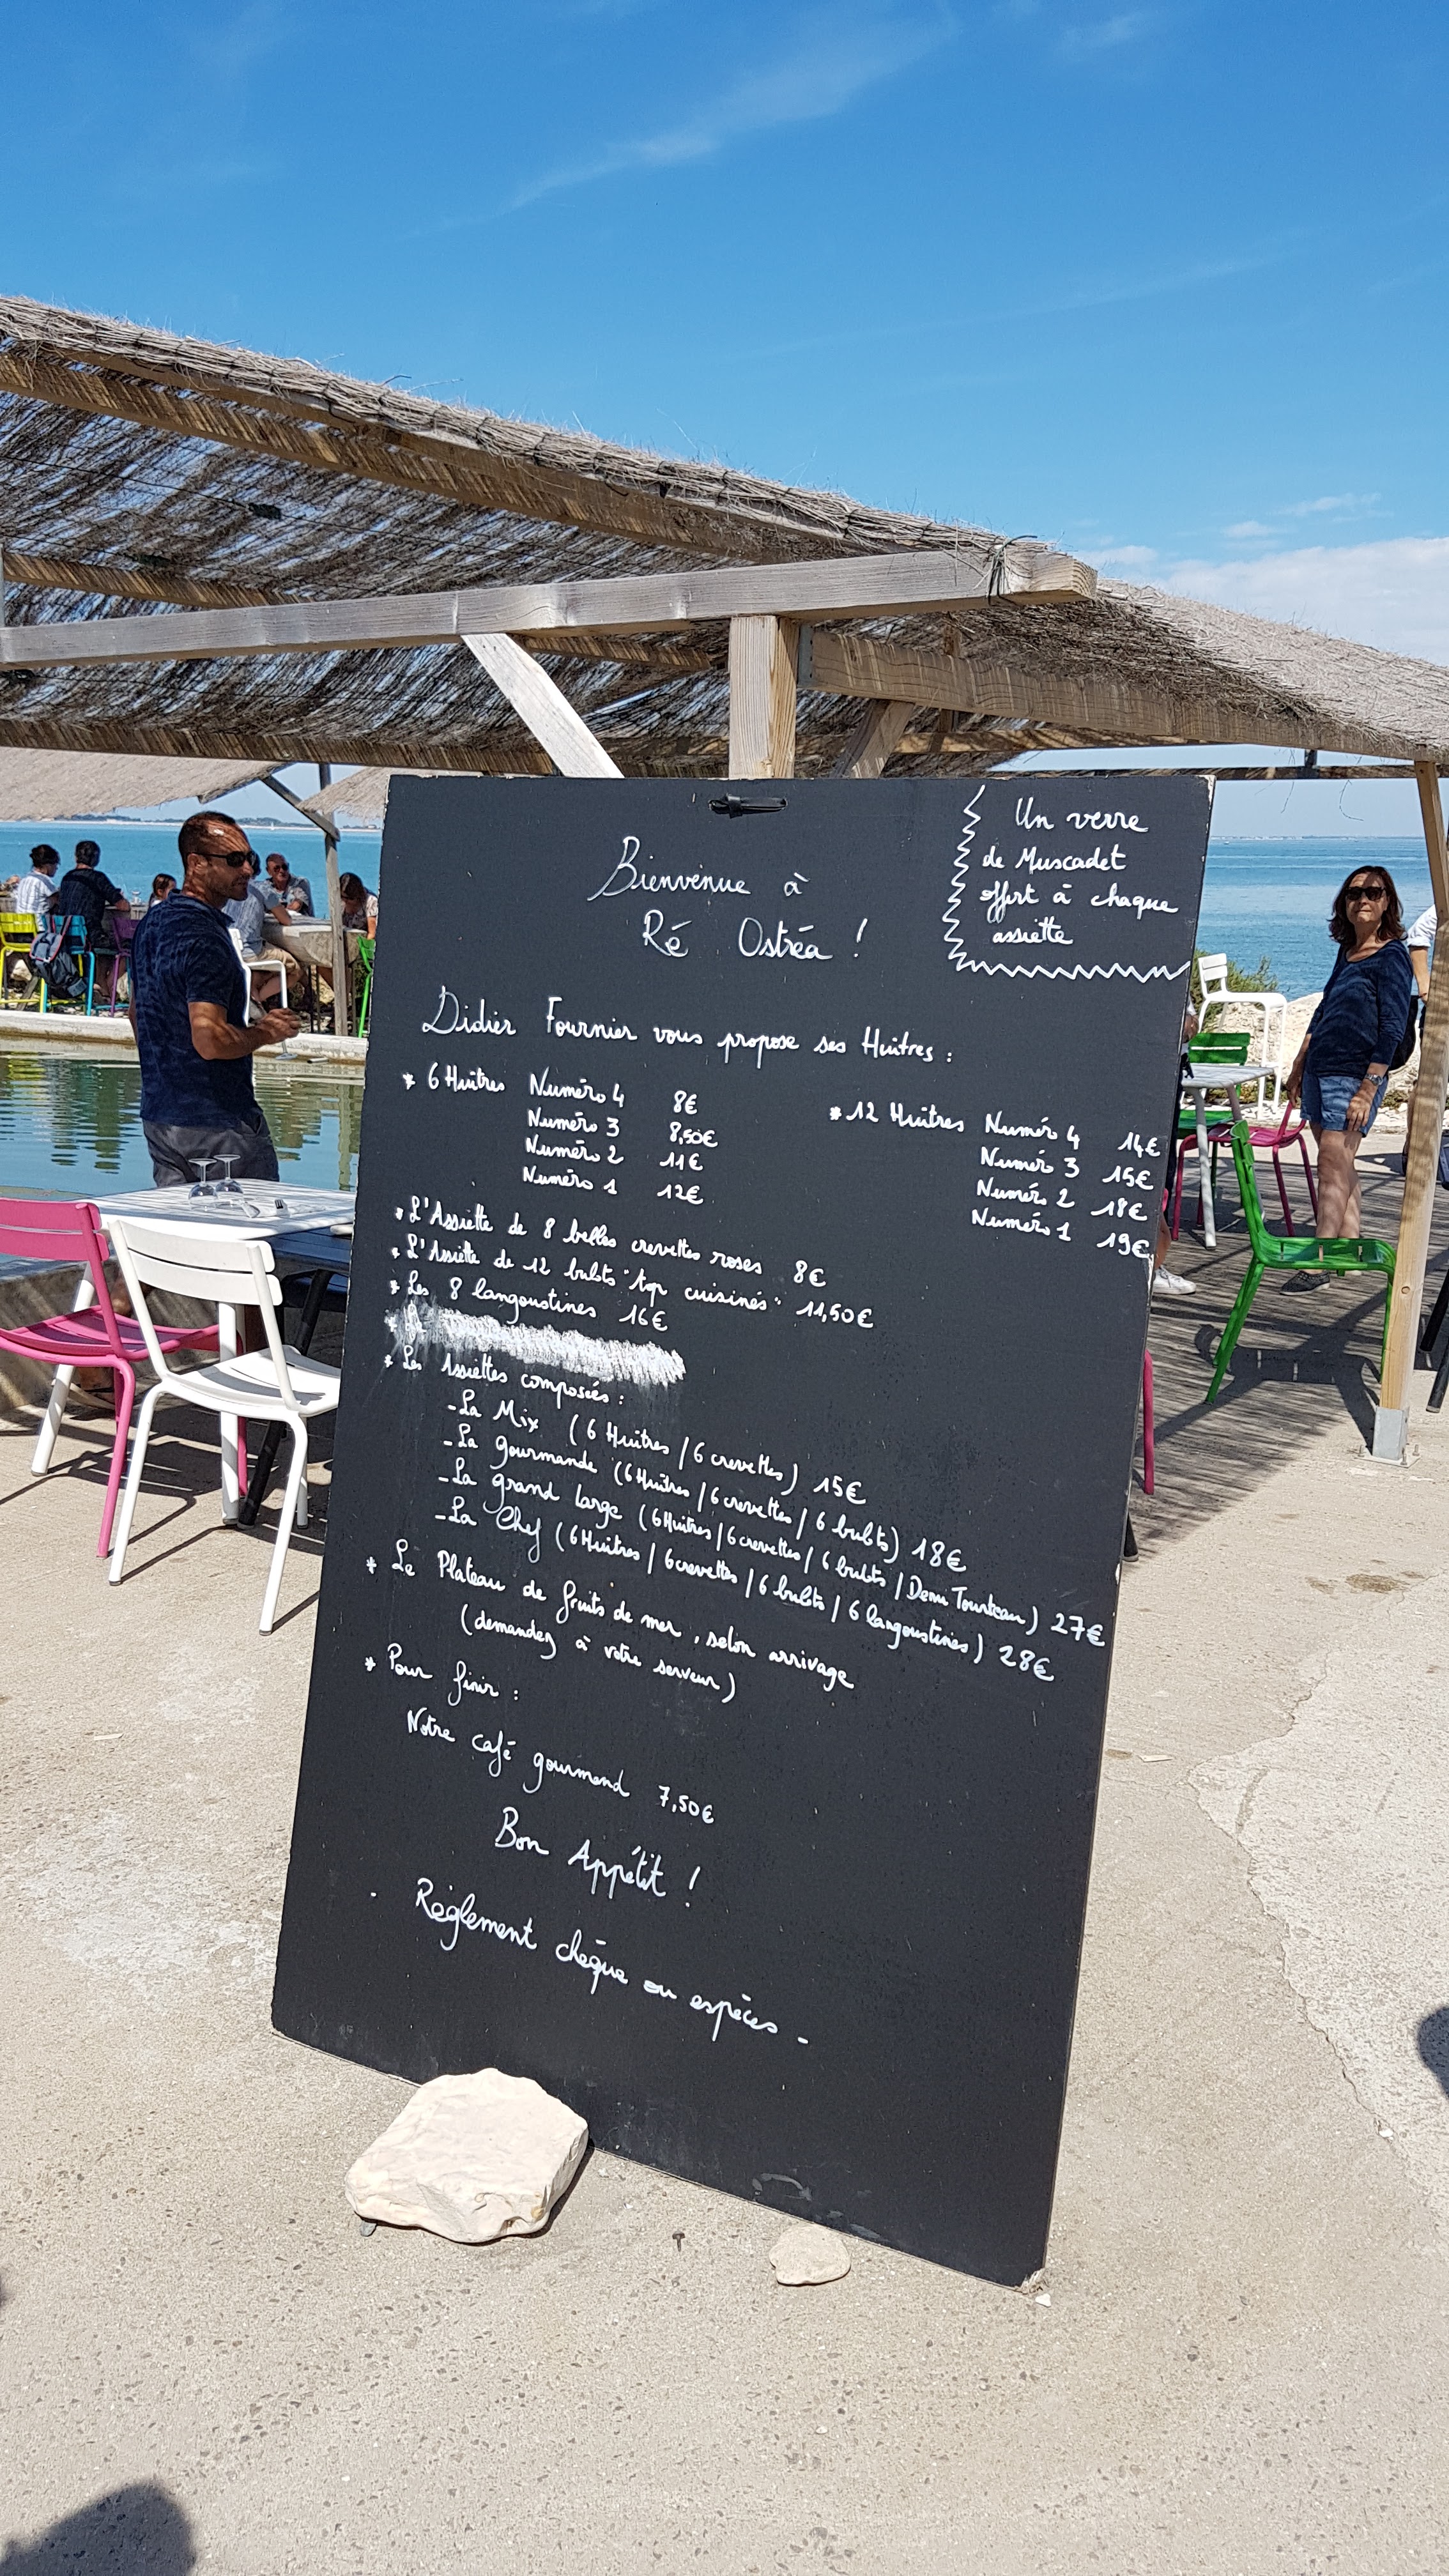 Un verre
de Muscadet
offert à chaque
assiette
Bienvenue à
Ré Ostréa !
Didier Fournier vous propose ses Huîtres :
* 6 Huîtres Numéro 4 8€
Numéro 3 8,50€
Numéro 2 11€
Numéro 1 12€
* 12 Huîtres Numéro 4 14€
Numéro 3 15€
Numéro 2 18€
Numéro 1 19€
* L'Assiette de 8 belles crevettes roses 8€
* L'Assiette de 12 bulots "top cuisinés" 11,50€
* Les 8 langoustines 16€
* Les Assiettes composées :
- La Mix (6 Huîtres / 6 crevettes) 15€
- La gourmande (6 Huîtres / 6 crevettes / 6 bulots) 18€
- La grand large (6 Huîtres / 6 crevettes / 6 bulots / Demi Tourteau) 27€
- La Chef (6 Huîtres / 6 crevettes / 6 bulots / 6 langoustines) 28€
* Le Plateau de fruits de mer, selon arrivage
(demandez à votre serveur)
* Pour finir :
Notre café gourmand 7,50€
Bon Appétit !
Règlement chèque ou espèces -